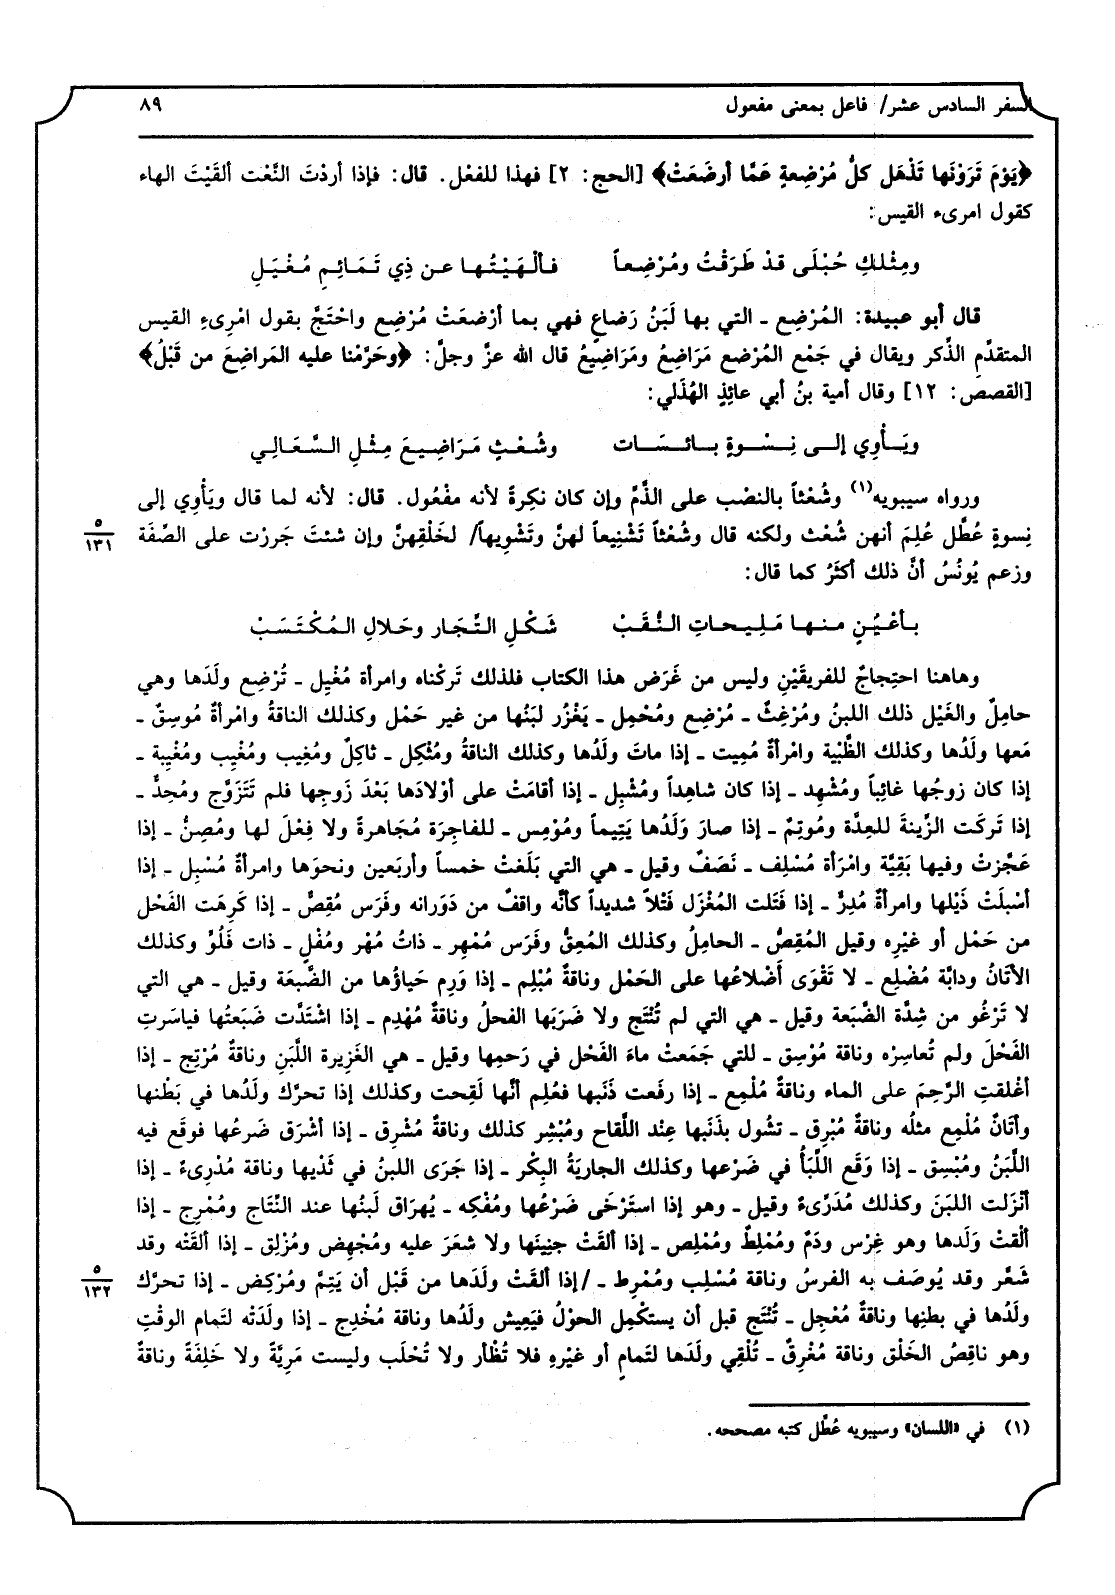 السفر السادس عشر/ فاعل بمعنى مفعول ٨٩
﴿يَوْمَ تَرَوْنَها تَذْهَل كلُّ مُرْضِعةٍ عَمَّا أرضَعَتْ﴾ [الحج: ٢] فهذا للفعْل. قال: فإذا أردْتَ النَّعْت ألقَيْتَ الهاء
كقول امرىء القيس:
ومِثْلكِ حُبْلَى قدْ طَرَقْتُ ومُرْضِعاً فألْهَيْتُها عن ذِي تَمَائِمِ مُغْيَلِ
قال أبو عبيدة: المُرْضِع ـ التي بها لَبَنُ رَضاعٍ فهي بما أرْضعَتْ مُرْضِع واحْتَجَّ بقول امْرِىءِ القيس
المتقدَّمِ الذِّكر ويقال في جَمْع المُرْضع مَرَاضِعُ ومَرَاضِيعُ قال الله عزَّ وجلَّ: ﴿وحَرَّمْنا عليه المَراضِعَ من قَبْلُ﴾
[القصص: ١٢] وقال أمية بنُ أبي عائذٍ الهُذَلي:
ويَأْوِي إلى نِسْوةٍ بائسَات وشُعْثٍ مَرَاضِيعَ مِثْلِ السَّعَالِي
ورواه سيبويه(١) وشُعْثاً بالنصْب على الذَّمِّ وإن كان نكِرةً لأنه مفْعُول. قال: لأنه لما قال ويَأْوِي إلى
نِسوةٍ عُطَّل عُلِمَ أنهن شُعْث ولكنه قال وشُعْثاً تَشْنِيعاً لهنَّ وتَشْوِيهاً/ لخَلْقِهنَّ وإن شئتَ جَررْت على الصِّفَة
٥
١٣١
وزعم يُونُسُ أنَّ ذلك أكثَرُ كما قال:
بأعْيُنٍ منها مَلِيحاتِ النُّقَبْ شَكْلِ التِّجَار وحَلالِ المُكْتَسَبْ
وهاهنا احتِجاجٌ للفريقَيْنِ وليس من غَرَض هذا الكتاب فلذلك تَركْناه وامرأة مُغْيِل ـ تُرْضِع ولَدَها وهي
حامِلٌ والغَيْل ذلك اللبنُ ومُرْغِثٌ ـ مُرْضِع ومُحْمِل ـ يَغْزُر لبَنُها من غير حَمْل وكذلك الناقةُ وامْرأةٌ مُوسِقٌ ـ
مَعها ولَدُها وكذلك الظَّبْية وامْرأةٌ مُمِيت ـ إذا ماتَ ولَدُها وكذلك الناقةُ ومُثْكِل ـ ثاكِلٌ ومُغِيب ومُغْيِب ومُغْيِبة ـ
إذا كان زوجُها غائِباً ومُشْهِد ـ إذا كان شاهِداً ومُشْبِل ـ إذا أقامَتْ على أوْلادَها بَعْدَ زَوجِها فلم تَتَزَوَّج ومُحِدٌّ ـ
إذا تَركَت الزِّينةَ للعِدَّة ومُوتِمٌ ـ إذا صارَ وَلَدُها يَتِيماً ومُؤمِس ـ للفاجِرَة مُجَاهرةً ولا فِعْلَ لها ومُصِنٌّ ـ إذا
عَجَّزتْ وفيها بَقِيَّة وامْرَأة مُسْلِف ـ نَصَفٌ وقيل ـ هي التي بَلَغتْ خمساً وأربَعين ونحوَها وامرأةٌ مُسْبِل ـ إذا
أسْبلَتْ ذَيْلها وامرأةٌ مُدِرٌّ ـ إذا فَتَلت المُغْزَل فَتْلاً شديداً كأنَّه واقفٌ من دَوَرانه وفَرَس مُقِصٌّ ـ إذا كَرِهَت الفَحْل
من حَمْل أو غيْرِه وقيل المُقِصُّ ـ الحامِلُ وكذلك المُعِقُّ وفَرَس مُمْهِر ـ ذاتُ مُهْر ومُفْلٍ ـ ذات فَلُوٍّ وكذلك
الأتَانُ ودابَّة مُضْلِع ـ لا تَقْوَى أضْلاعُها على الحَمْل وناقةٌ مُبْلِم ـ إذا وَرِم حَياؤُها من الضَّبعَة وقيل ـ هي التي
لا تَرْغُو من شِدَّة الضَّبَعة وقيل ـ هي التي لم تُنْتَج ولا ضَرَبَها الفحلُ وناقةٌ مُهْدِم ـ إذا اشْتَدَّت ضَبَعتُها فياسَرتِ
الفَحْلَ ولم تُعاسِرْه وناقة مُوْسِق ـ للتي جَمَعتْ ماءَ الفَحْل في رَحِمِها وقيل ـ هي الغَزِيرة اللَّبَنِ وناقةٌ مُرْتِج ـ إذا
أغْلقتِ الرَّحِمَ على الماء وناقةٌ مُلْمِع ـ إذا رفَعت ذَنَبها فعُلِم أنَّها لَقِحت وكذلك إذا تحرَّك ولَدُها في بَطْنها
وأتَانٌ مُلْمِع مثلُه وناقةٌ مُبْرِق ـ تشُول بذَنَبها عِنْد اللِّقاح ومُبْشِر كذلك وناقةٌ مُشْرِق ـ إذا أشْرَق ضَرعُها فوقَع فيه
اللَّبَنُ ومُبْسِق ـ إذا وَقَع اللِّبَأُ في ضَرْعها وكذلك الجاريَةُ البِكْر ـ إذا جَرَى اللبنُ في ثَدْيها وناقة مُدْرِىءٌ ـ إذا
أنْزَلت اللبَنَ وكذلك مُدَرِّىءٌ وقيل ـ وهو إذا استَرْخَى ضَرْعُها ومُفْكِه ـ يُهرَاق لَبنُها عند النِّتَاج ومُمْرِج ـ إذا
ألْقتْ وَلَدها وهو غِرْس ودَمٌ ومُمْلِطٌ ومُمْلِص ـ إذا ألقَتْ جنِينَها ولا شعَرَ عليه ومُجْهِض ومُزْلِق ـ إذا ألقَتْه وقد
شَعَّر وقد يُوصَف به الفرسُ وناقة مُسْلِب ومُمْرِط ـ /إذا ألقَتْ ولَدَها من قَبْل أن يَتِمَّ ومُرْكِض ـ إذا تحرَّك
٥
١٣٢
ولَدُها في بطنِها وناقةٌ مُعْجِل ـ تُنْتَج قبل أن يستكْمِل الحوْلُ فيَعِيش ولَدُها وناقة مُخْدِج ـ إذا ولَدَتْه لتَمام الوقْتِ
وهو ناقِصُ الخَلْق وناقة مُغْرِقٌ ـ تُلْقِي ولَدَها لتَمامٍ أو غيْرِهِ فلا تُظْأر ولا تُحْلَب وليست مَرِيَّةً ولا خَلِفَةً وناقةٌ
(١) في «اللسان» وسيبويه عُطَّل كتبه مصححه.